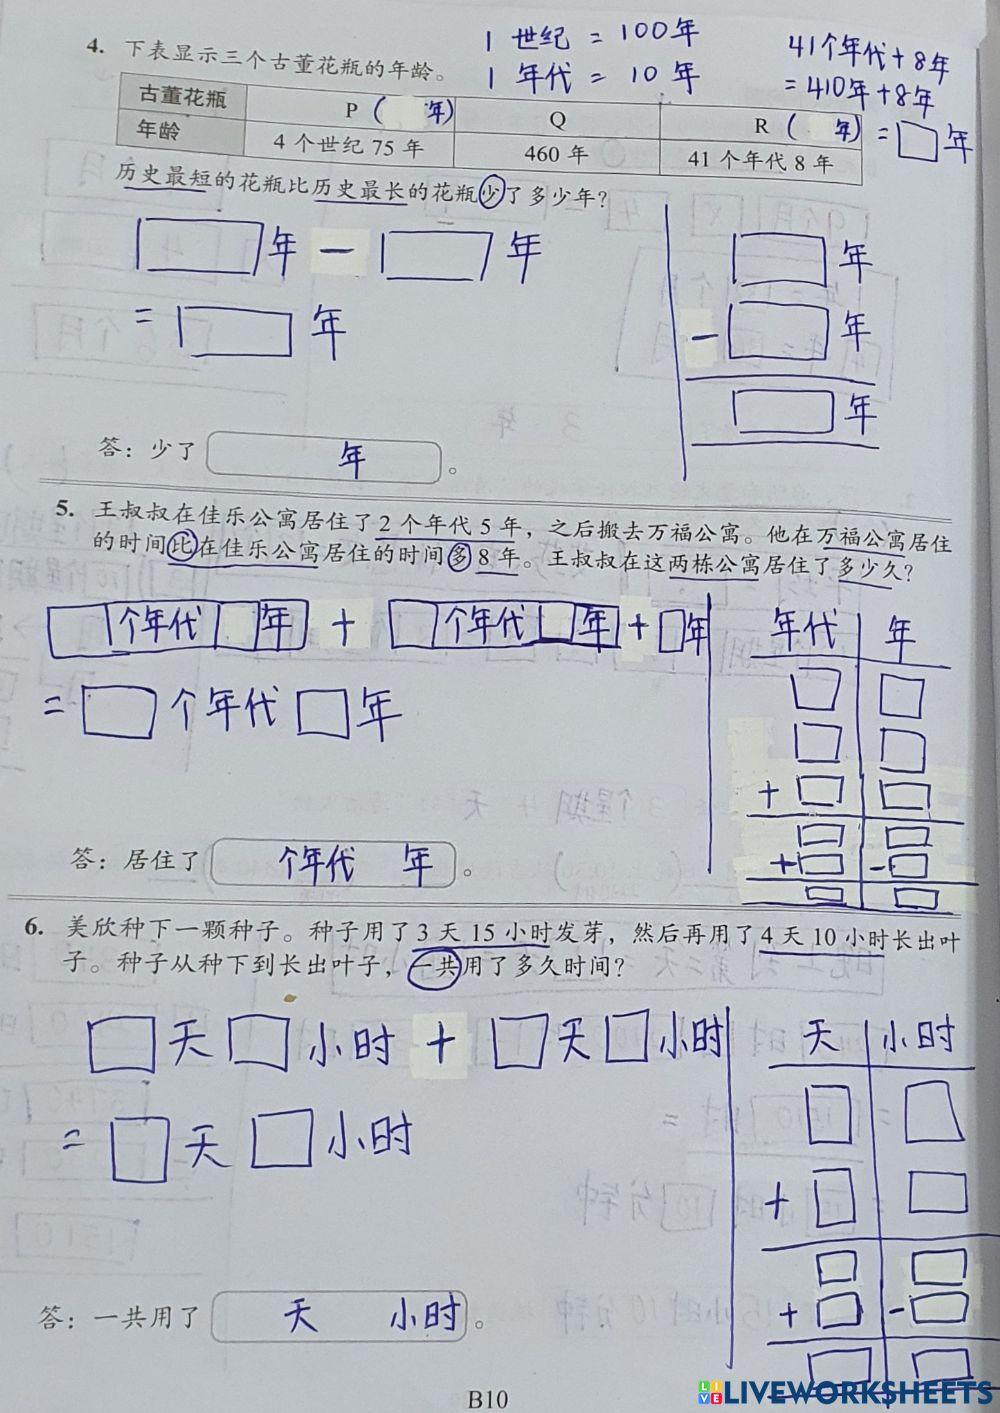 1 世纪 = 100年
1 年代 = 10 年
41个年代 + 8年
= 410年 + 8年
= □ 年
4. 下表显示三个古董花瓶的年龄。
古董花瓶 P ( 年) Q R ( 年)
年龄 4 个世纪 75 年 460 年 41 个年代 8 年
历史最短的花瓶比历史最长的花瓶少了多少年？
□ 年 − □ 年
= □ 年
□ 年
− □ 年
□ 年
答：少了 年 。
5. 王叔叔在佳乐公寓居住了 2 个年代 5 年，之后搬去万福公寓。他在万福公寓居住
的时间比在佳乐公寓居住的时间多 8 年。王叔叔在这两栋公寓居住了多少久？
□ 个年代 □ 年 + □ 个年代 □ 年 + □ 年
= □ 个年代 □ 年
年代 年
□ □
□ □
+ □ □
□ □
+ □ − □
□ □
答：居住了 个年代 年 。
6. 美欣种下一颗种子。种子用了 3 天 15 小时发芽，然后再用了 4 天 10 小时长出叶
子。种子从种下到长出叶子，一共用了多久时间？
□ 天 □ 小时 + □ 天 □ 小时
= □ 天 □ 小时
天 小时
□ □
+ □ □
□ □
+ □ − □
□ □
答：一共用了 天 小时 。
B10
LIVEWORKSHEETS